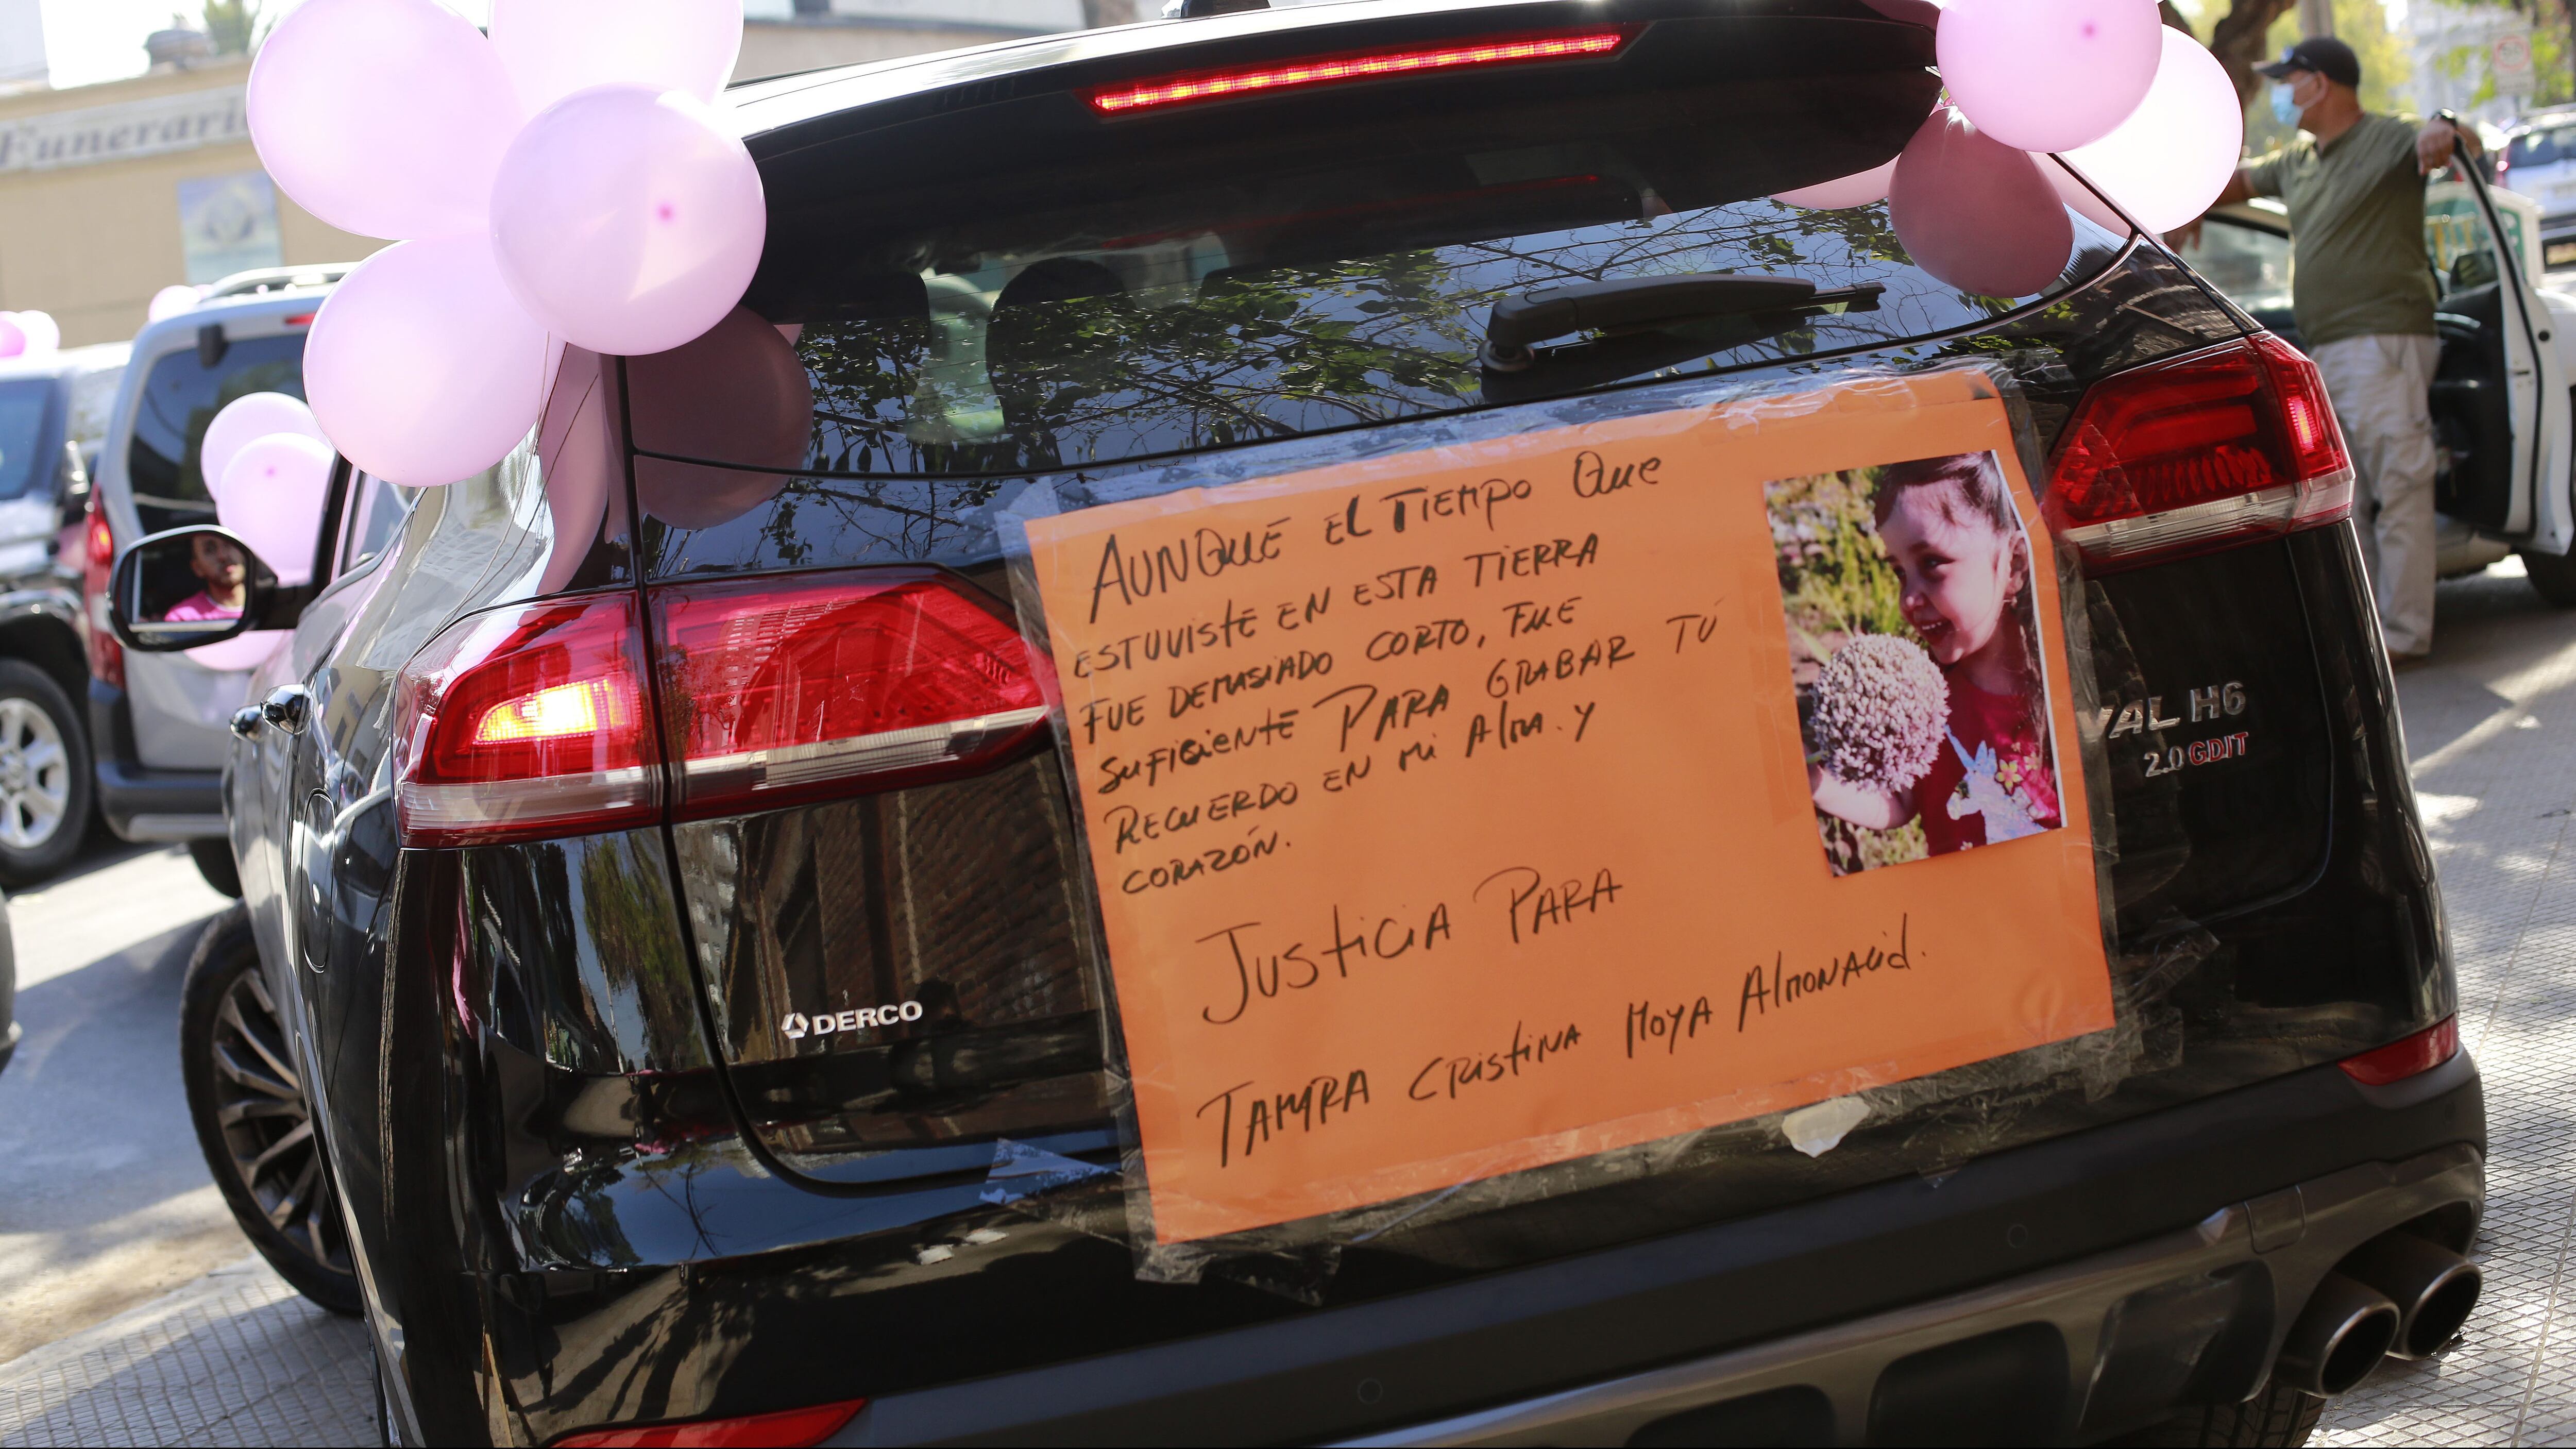 Funerari
AUNQUE EL TIEMPO QUE
ESTUVISTE EN ESTA TIERRA
FUE DEMASIADO CORTO, FUE
SUFICIENTE PARA GRABAR TÚ
RECUERDO EN MI ALMA. Y
CORAZÓN.
JUSTICIA PARA
TAMRA CRISTINA MOYA ALMONACID.
VAL H6
2.0 GDIT
DERCO